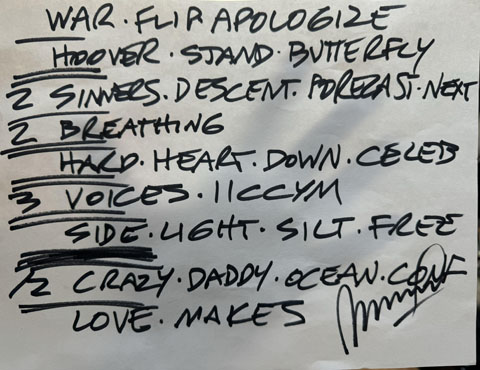 WAR. FLIP APOLOGIZE
HOOVER. STAND. BUTTERFLY
2 SINNERS. DESCENT. FORECAST. NEXT
2 BREATHING
HARD. HEART. DOWN. CELEB
3 VOICES. IICCYM
SIDE. LIGHT. SILT. FREE
/2 CRAZY. DADDY. OCEAN. CONF
LOVE. MAKES